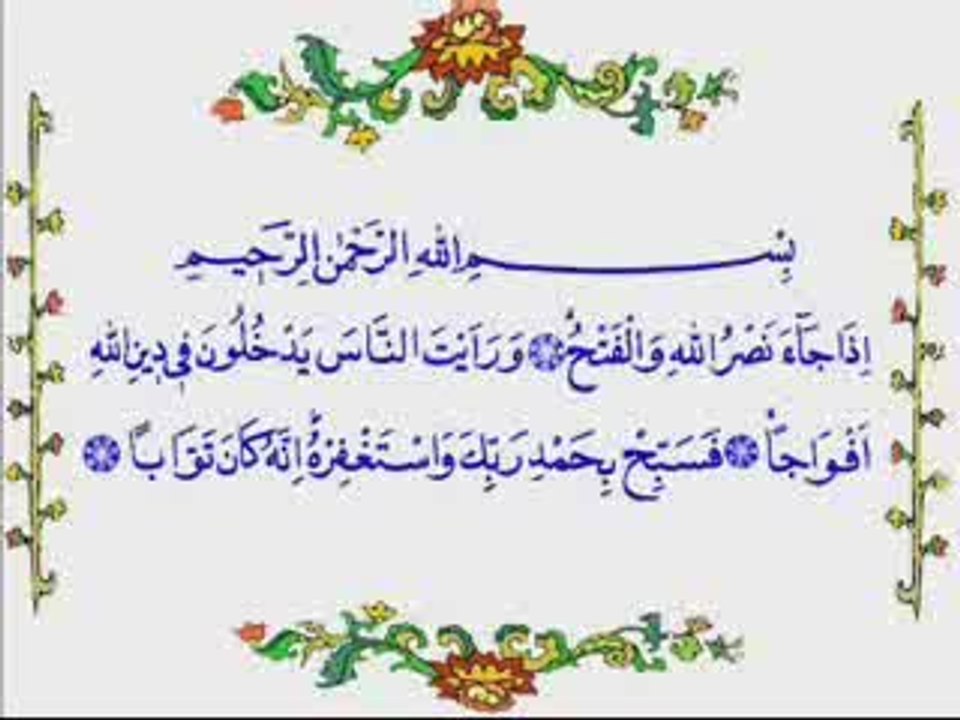 بِسْمِ اللهِ الرَّحْمٰنِ الرَّحِيمِ
اِذَا جَآءَ نَصْرُ اللهِ وَالْفَتْحُۙ ۞ وَرَاَيْتَ النَّاسَ يَدْخُلُونَ فٖى دٖينِ اللهِ
اَفْوَاجاًۙ ۞ فَسَبِّحْ بِحَمْدِ رَبِّكَ وَاسْتَغْفِرْهُۜ اِنَّهُ كَانَ تَوَّاباً ۞